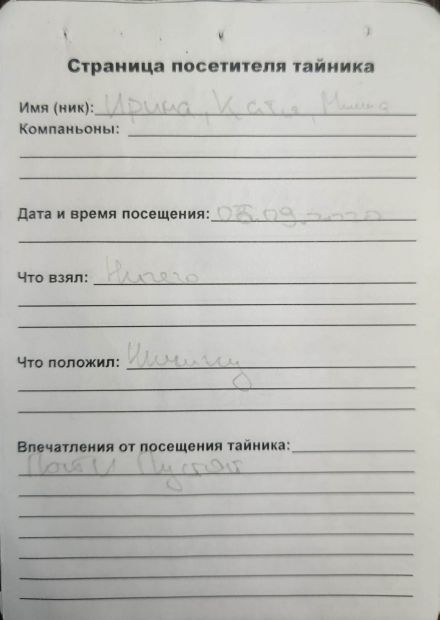 Страница посетителя тайника
Имя (ник): Ирина, Катя,
Компаньоны:
Дата и время посещения: 05.09.2020
Что взял: Ничего
Что положил:
Впечатления от посещения тайника:
Почти Пустой